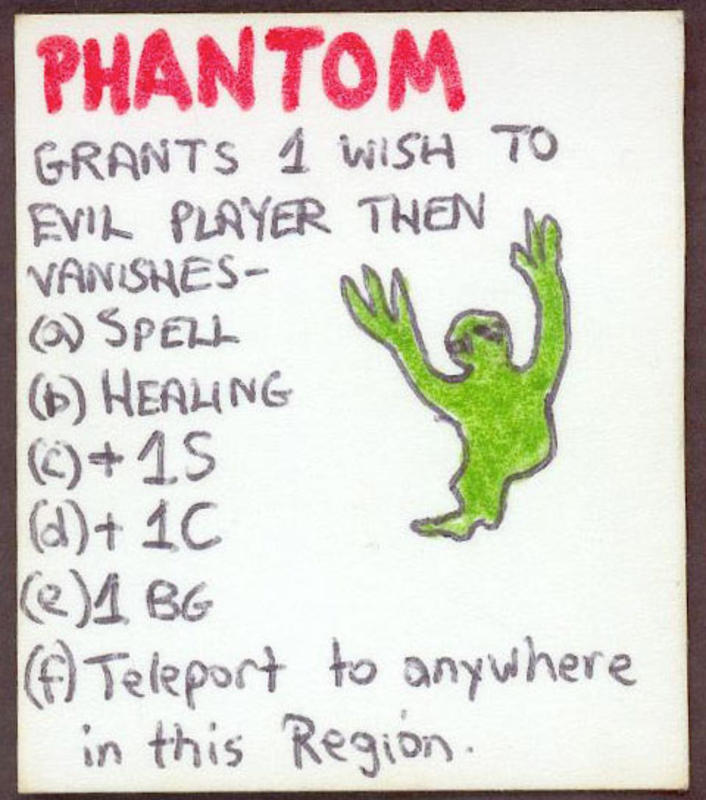 PHANTOM
GRANTS 1 WISH TO
EVIL PLAYER THEN
VANISHES-
(a) SPELL
(b) HEALING
(c) + 1S
(d) + 1C
(e) 1 BG
(f) Teleport to anywhere
in this Region.